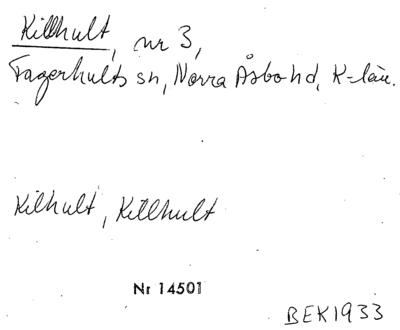 Killhult, nr 3,
Fagerhults sn, Norra Åsbo hd, K-län.
Kilhult, Killhult
Nr 14501
BEK1933